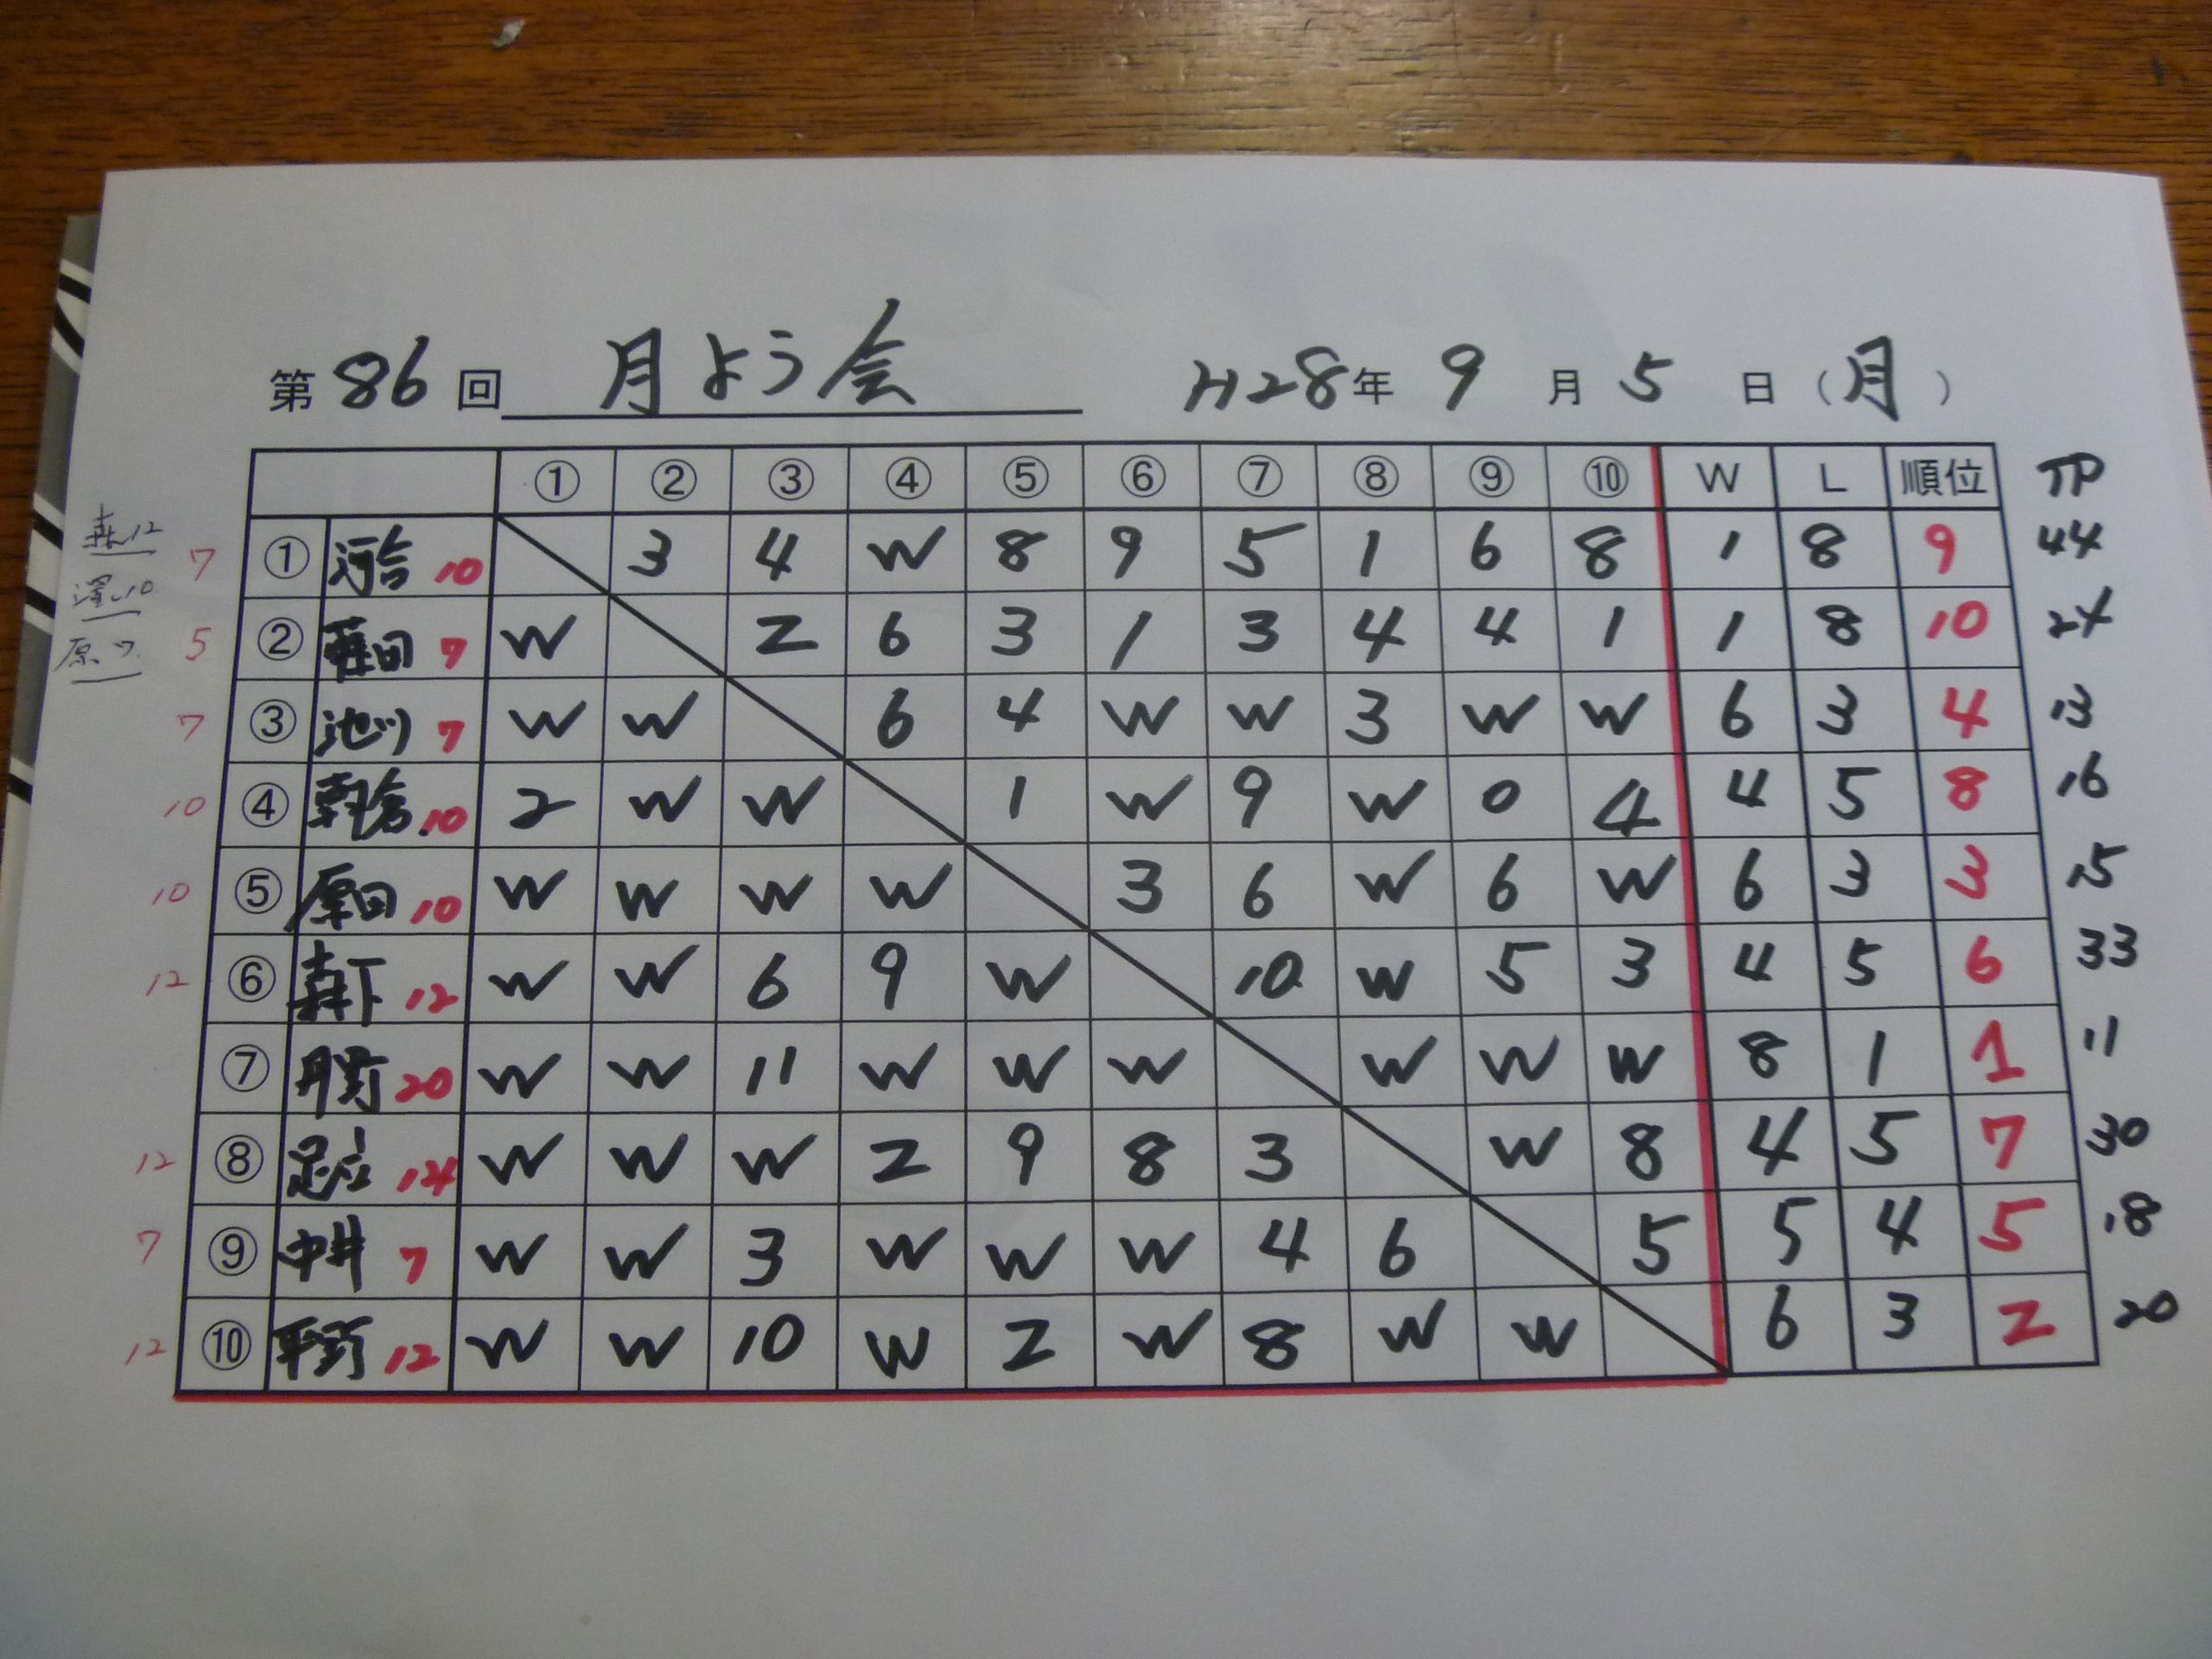 第 86 回 月よう会 H28年 9 月 5 日 (月)
① ② ③ ④ ⑤ ⑥ ⑦ ⑧ ⑨ ⑩ W L 順位 TP
森 12
7 ① 河合 10 3 4 W 8 9 5 1 6 8 1 8 9 44
澤 10
5 ② 田 7 W 2 6 3 1 3 4 4 1 1 8 10 24
原 7
7 ③ 池川 7 W W 6 4 W W 3 W W 6 3 4 13
10 ④ 朝倉 10 2 W W 1 W 9 W 0 4 4 5 8 16
10 ⑤ 原田 10 W W W W 3 6 W 6 W 6 3 3 15
12 ⑥ 森下 12 W W 6 9 W 10 W 5 3 4 5 6 33
⑦ 20 W W 11 W W W W W W 8 1 1 11
12 ⑧ 足立 W W W 2 9 8 3 W 8 4 5 7 30
7 ⑨ 中井 7 W W 3 W W W 4 6 5 5 4 5 18
12 ⑩ 12 W W 10 W 2 W 8 W W 6 3 2 20